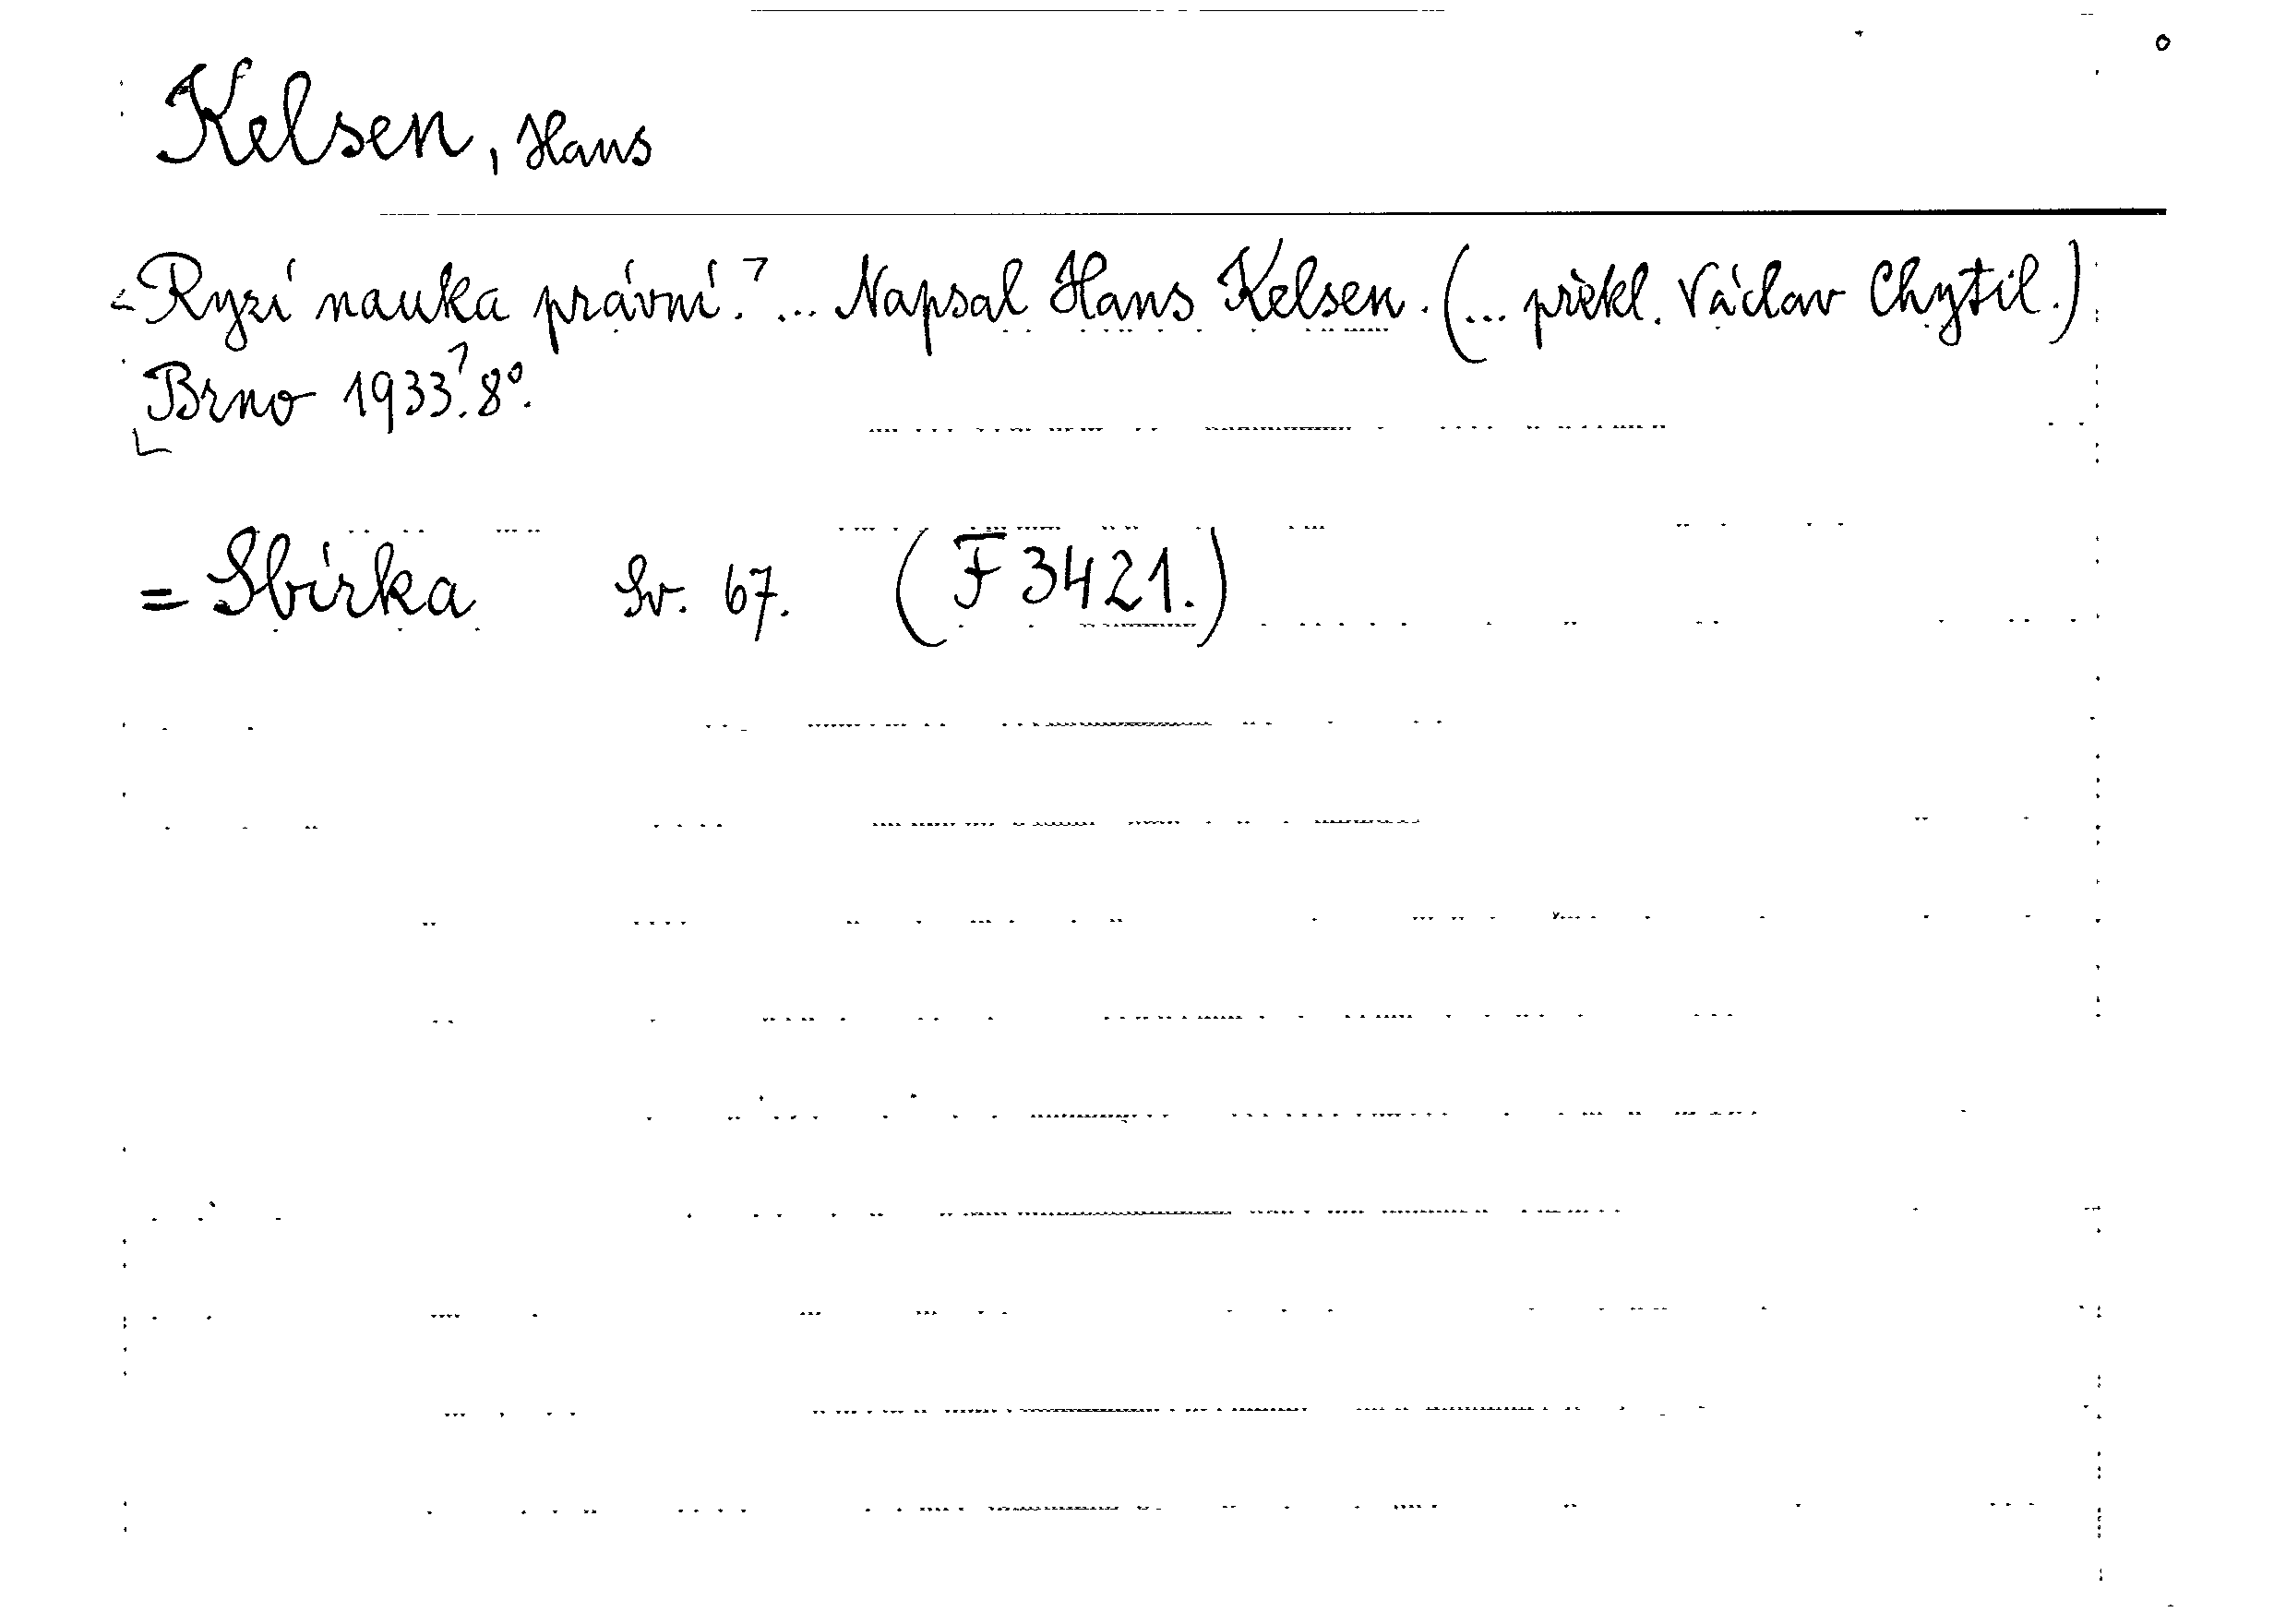 Kelsen, Hans
Ryzí nauka právní. ... Napsal Hans Kelsen. (... překl. Václav Chytil.)
Brno 1933. 8°.
= Sbírka Sv. 67. (F 3421.)